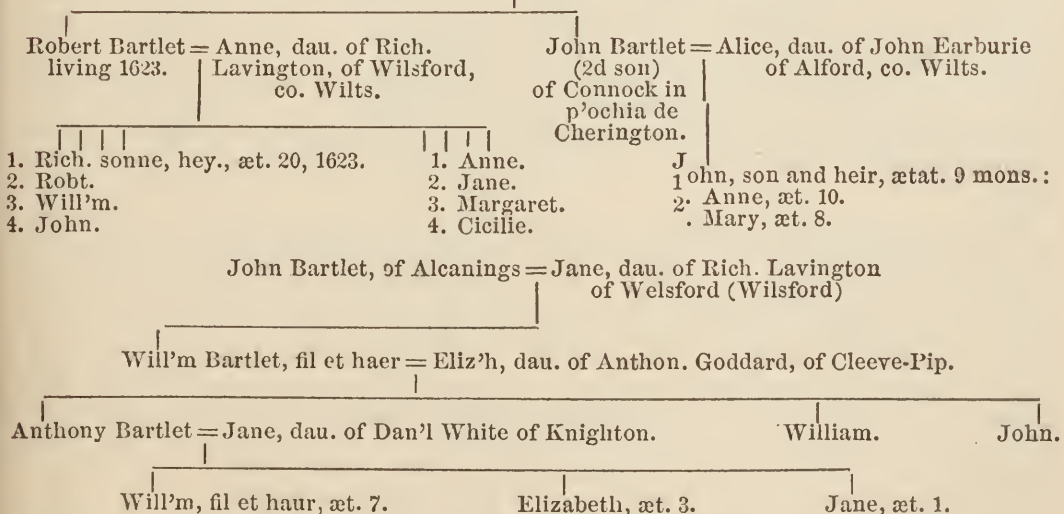 Robert Bartlet = Anne, dau. of Rich.
living 1623. Lavington, of Wilsford,
co. Wilts.
John Bartlet = Alice, dau. of John Earburie
(2d son) of Alford, co. Wilts.
of Connock in
p'ochia de
Cherington.
1. Rich. sonne, hey., æt. 20, 1623.
2. Robt.
3. Will'm.
4. John.
1. Anne.
2. Jane.
3. Margaret.
4. Cicilie.
J
1 ohn, son and heir, ætat. 9 mons.:
2. Anne, æt. 10.
. Mary, æt. 8.
John Bartlet, of Alcanings = Jane, dau. of Rich. Lavington
of Welsford (Wilsford)
Will'm Bartlet, fil et haer = Eliz'h, dau. of Anthon. Goddard, of Cleeve-Pip.
Anthony Bartlet = Jane, dau. of Dan'l White of Knighton. William. John.
Will'm, fil et haur, æt. 7. Elizabeth, æt. 3. Jane, æt. 1.